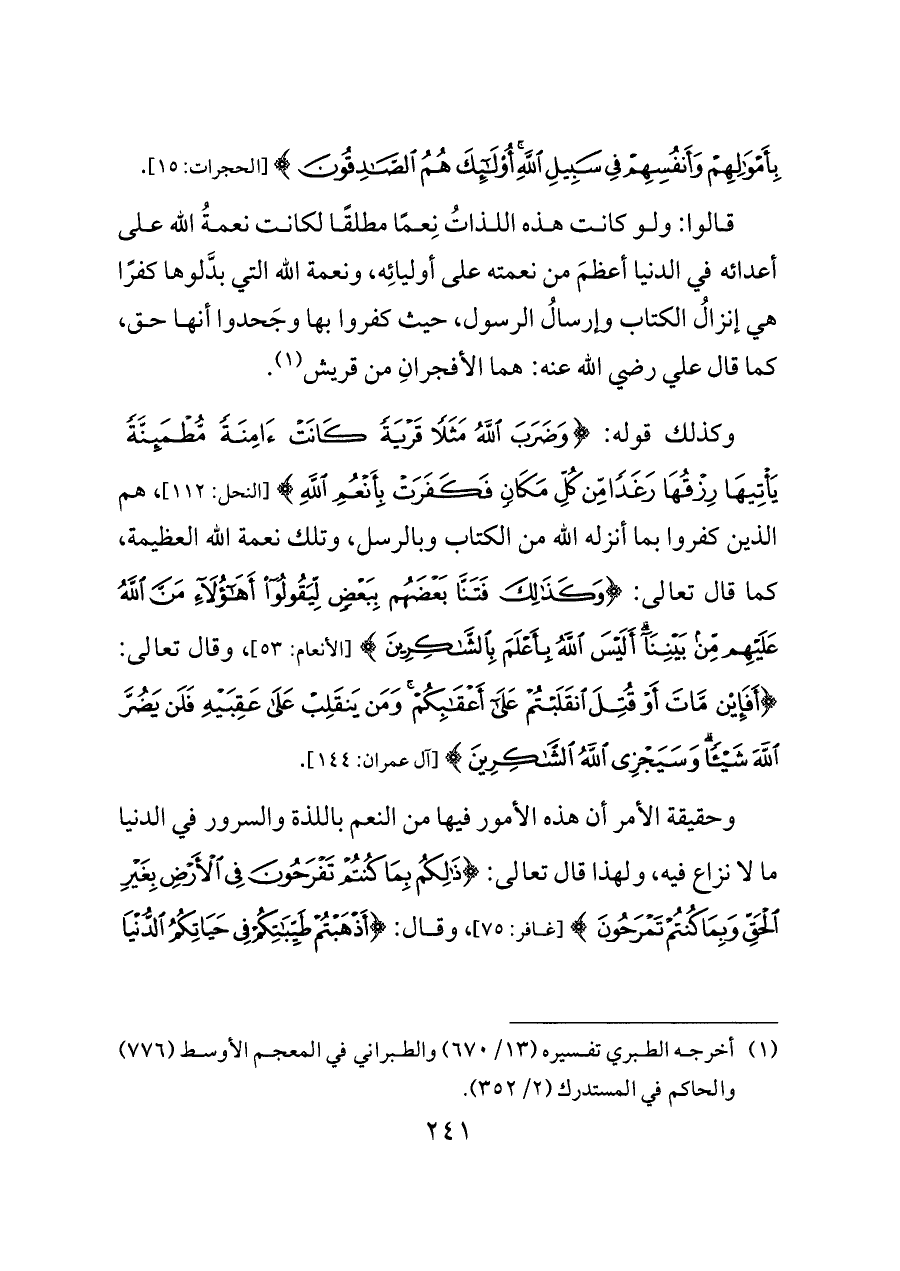 بِأَمْوَٰلِهِمْ وَأَنفُسِهِمْ فِى سَبِيلِ ٱللَّهِ ۚ أُو۟لَٰٓئِكَ هُمُ ٱلصَّٰدِقُونَ ﴾ [الحجرات: ١٥].
قالوا: ولو كانت هذه اللذاتُ نِعمًا مطلقًا لكانت نعمةُ الله على
أعدائه في الدنيا أعظمَ من نعمته على أوليائِه، ونعمة الله التي بدَّلوها كفرًا
هي إنزالُ الكتاب وإرسالُ الرسول، حيث كفروا بها وجَحدوا أنها حق،
كما قال علي رضي الله عنه: هما الأفجرانِ من قريش(١).
وكذلك قوله: ﴿وَضَرَبَ ٱللَّهُ مَثَلًا قَرْيَةً كَانَتْ ءَامِنَةً مُّطْمَئِنَّةً
يَأْتِيهَا رِزْقُهَا رَغَدًا مِّن كُلِّ مَكَانٍ فَكَفَرَتْ بِأَنْعُمِ ٱللَّهِ ﴾ [النحل: ١١٢]، هم
الذين كفروا بما أنزله الله من الكتاب وبالرسل، وتلك نعمة الله العظيمة،
كما قال تعالى: ﴿وَكَذَٰلِكَ فَتَنَّا بَعْضَهُم بِبَعْضٍ لِّيَقُولُوٓا۟ أَهَٰٓؤُلَآءِ مَنَّ ٱللَّهُ
عَلَيْهِم مِّنۢ بَيْنِنَآ ۗ أَلَيْسَ ٱللَّهُ بِأَعْلَمَ بِٱلشَّٰكِرِينَ ﴾ [الأنعام: ٥٣]، وقال تعالى:
﴿أَفَإِي۟ن مَّاتَ أَوْ قُتِلَ ٱنقَلَبْتُمْ عَلَىٰٓ أَعْقَٰبِكُمْ ۚ وَمَن يَنقَلِبْ عَلَىٰ عَقِبَيْهِ فَلَن يَضُرَّ
ٱللَّهَ شَيْـًٔا ۗ وَسَيَجْزِى ٱللَّهُ ٱلشَّٰكِرِينَ ﴾ [آل عمران: ١٤٤].
وحقيقة الأمر أن هذه الأمور فيها من النعم باللذة والسرور في الدنيا
ما لا نزاع فيه، ولهذا قال تعالى: ﴿ذَٰلِكُم بِمَا كُنتُمْ تَفْرَحُونَ فِى ٱلْأَرْضِ بِغَيْرِ
ٱلْحَقِّ وَبِمَا كُنتُمْ تَمْرَحُونَ ﴾ [غافر: ٧٥]، وقال: ﴿أَذْهَبْتُمْ طَيِّبَٰتِكُمْ فِى حَيَاتِكُمُ ٱلدُّنْيَا
(١) أخرجه الطبري تفسيره (١٣/ ٦٧٠) والطبراني في المعجم الأوسط (٧٧٦)
والحاكم في المستدرك (٢/ ٣٥٢).
٢٤١